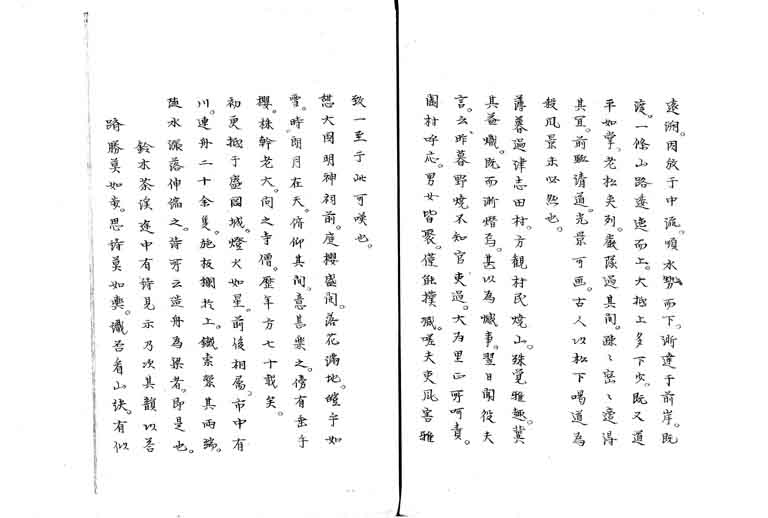 遠洞。因放于中流。順水勢而下。漸達于前岸。既
渡。一條山路透迤而上。大抵上多下少。既又道
平如掌。老松夾列。嚴隊過其間。疎々密々。遠得
其冝。前驅請道。光景可画。古人以松下喝道為
殺風景未必然也。
薄暮過津志田村。方観村民焼山。殊覚雅趣。冀
其益熾。既而漸燈爲。甚以為憾事。翌日聞役夫
言。云。昨暮野焼不知官吏過。大為里正所呵責。
闔村呼応。男女皆聚。僅能撲滅。嗟夫吏風害雅
致一至于此可嘆也。
憩大國明神祠前。庭櫻盛開。落花滿地。皚乎如
雪。時朗月在天。俯仰其間。意甚楽之。傍有垂手
櫻。株幹老大。問之寺僧。歴年方七十載矣。
初更抵于盛岡城。燈火如星。前後相属。市中有
川。連舟二十余隻。施板欄於上。鐵索繋其両端。
随水漲落伸縮之。詩所云造舟為梁者。即是也。
鈴木茶溪途中有詩見示乃次其韻以答
躋勝莫如麥。思詩莫如樂。微吾看山詩。有似